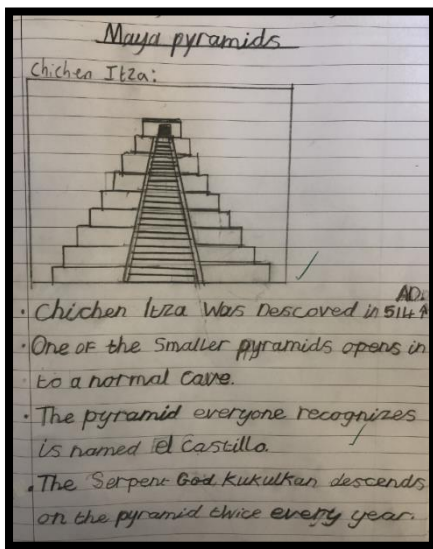 Maya pyramids
Chichen Itza:
AD.
• Chichen Itza was Descoved in 514
• One of the smaller pyramids opens in
to a normal cave.
• The pyramid everyone recognizes
is named el Castillo.
• The Serpent God Kukulkan descends
on the pyramid twice every year.